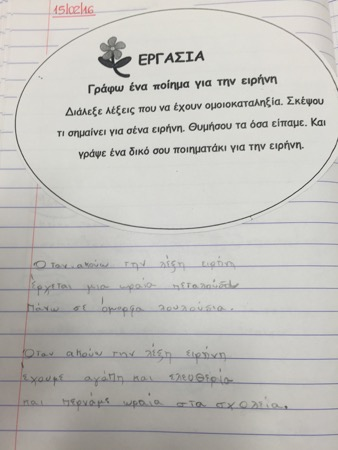 15/02/16
ΕΡΓΑΣΙΑ
Γράφω ένα ποίημα για την ειρήνη
Διάλεξε λέξεις που να έχουν ομοιοκαταληξία. Σκέψου
τι σημαίνει για σένα ειρήνη. Θυμήσου τα όσα είπαμε. Και
γράψε ένα δικό σου ποιηματάκι για την ειρήνη.
Όταν ακούω την λέξη ειρήνη
έρχεται μια ωραία
πάνω σε όμορφα λουλούδια.
Όταν ακούω την λέξη ειρήνη
έχουμε αγάπη και ελευθερία
και περνάμε ωραία στα σχολεία.